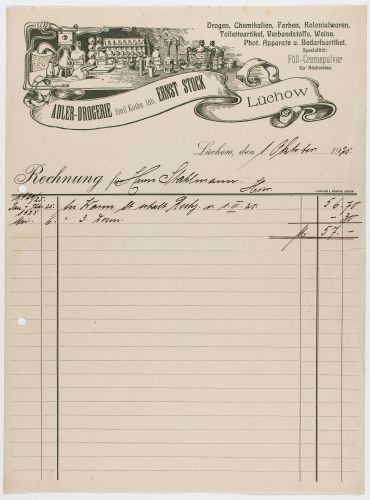 Drogen, Chemikalien, Farben, Kolonialwaren,
Toiletteartikel, Verbandstoffe, Weine.
Phot. Apparate u. Bedarfsartikel.
Spezialität:
Füll-Cremepulver
für Bäckereien.
ADLER-DROGERIE Emil Kothe, Inh. ERNST STOCK
Lüchow
Lüchow, den 1. Oktober 1925.
Rechnung für Herrn Stahlmann
Hier.
1925. An Waren lt. erhalt. Rechg. v. 1. III. 25. 56.70
1925.
Mai 6. " 3. -.30
M. 57.-